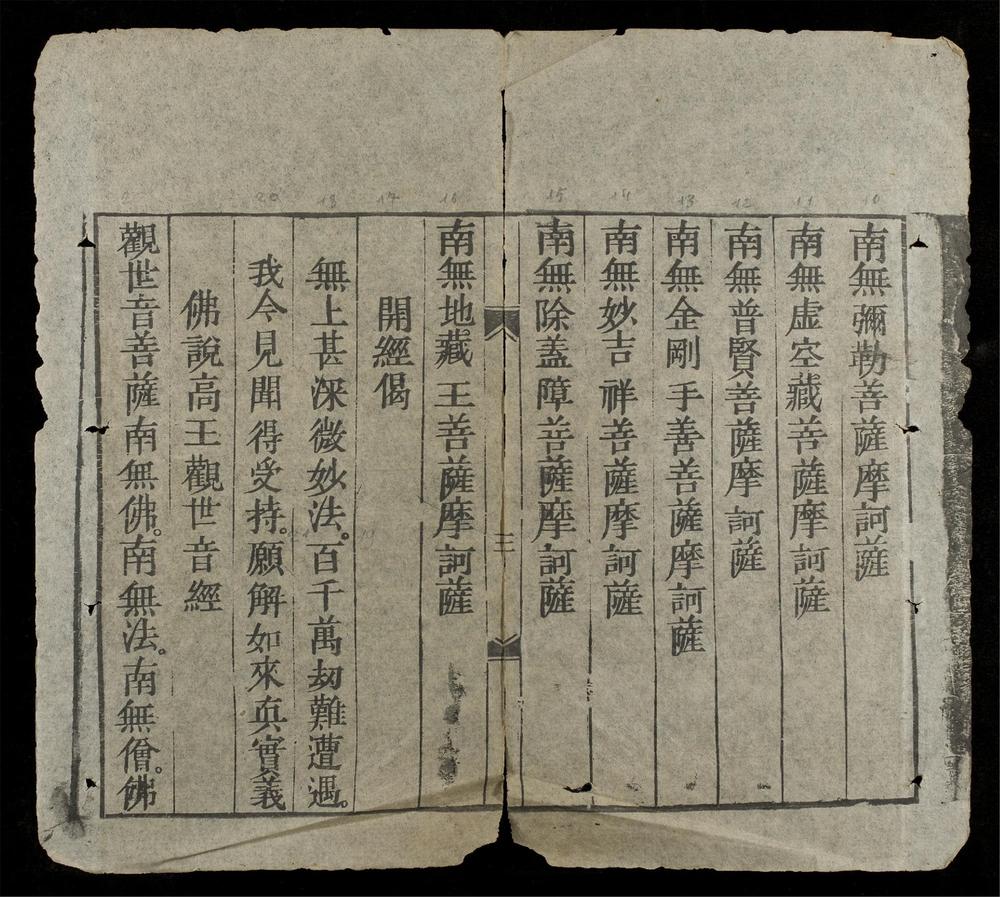 南無彌勒菩薩摩訶薩
南無虛空藏菩薩摩訶薩
南無普賢菩薩摩訶薩
南無金剛手善菩薩摩訶薩
南無妙吉祥菩薩摩訶薩
南無除盖障菩薩摩訶薩
三
南無地藏王菩薩摩訶薩
開經偈
無上甚深微妙法。百千萬劫難遭遇。
我今見聞得受持。願解如來真實義
佛說高王觀世音經
觀世音菩薩南無佛。南無法。南無僧。佛